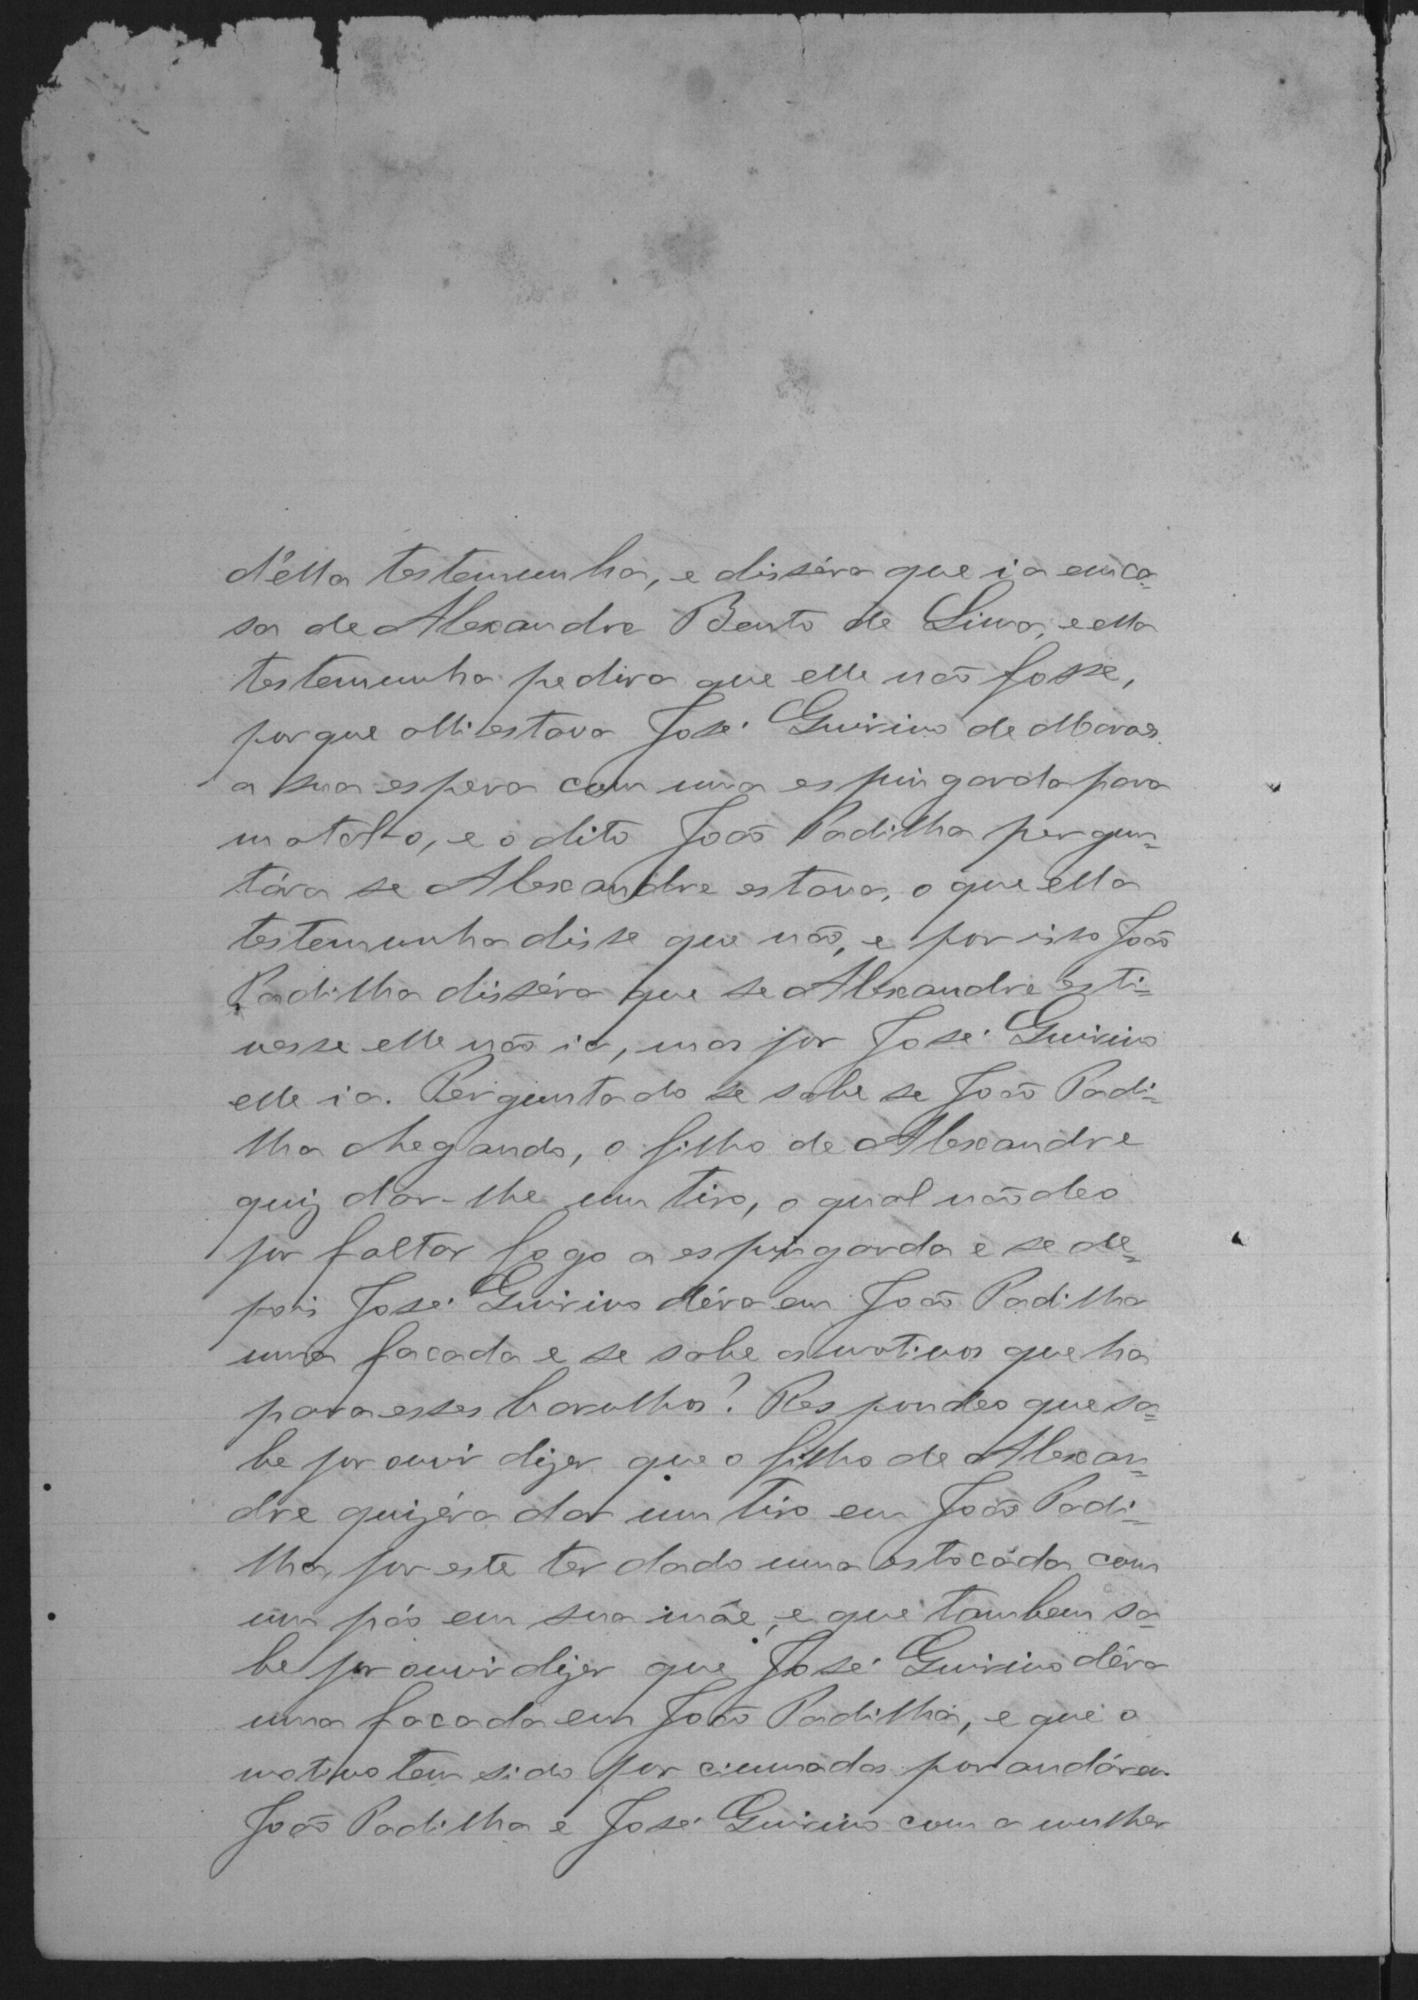 d'ella testemunha, e disséra que ia em ca-
sa de Alexandre Bento de Lima, e ella
testemunha pedira que elle não fosse,
porque alli estava José Quirino de Moraes
a sua espera com uma espingarda para
matal-o, e o dito João Padilha pergun-
tára se Alexandre estava, o que ella
testemunha disse que não, e por isso João
Padilha disséra que se Alexandre esti-
vesse elle não ia, mas por José Quirino
elle ia. Perguntado se sabe se João Padi-
lha chegando, o filho de Alexandre
quiz dar-lhe um tiro, o qual não deo
por faltar fogo a espingarda e se de-
pois José Quirino déra em João Padilha
uma facada e se sabe os motivos que ha
para esses barulhos? Respondeo que sa-
be por ouvir dizer que o filho de Alexan-
dre quizéra dar um tiro em João Padi-
lha, por este ter dado uma estocáda com
um páo em sua mãe, e que tambem sa-
be por ouvir dizer que José Quirino déra
uma facada em João Padilha, e que o
motivo tem sido por ciumadas por andárem
João Padilha e José Quirino com a mulher